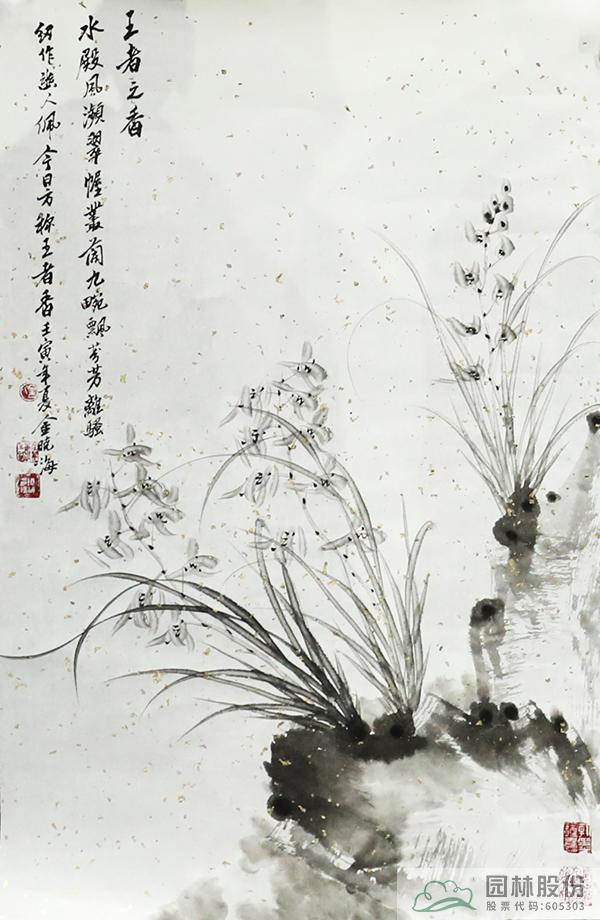 王者之香
水殿風瀕翠幄叢蘭九畹飄芬芳離騷
紉作人佩今日方称王者香 壬寅年夏金晓海
园林股份
股票代码:605303